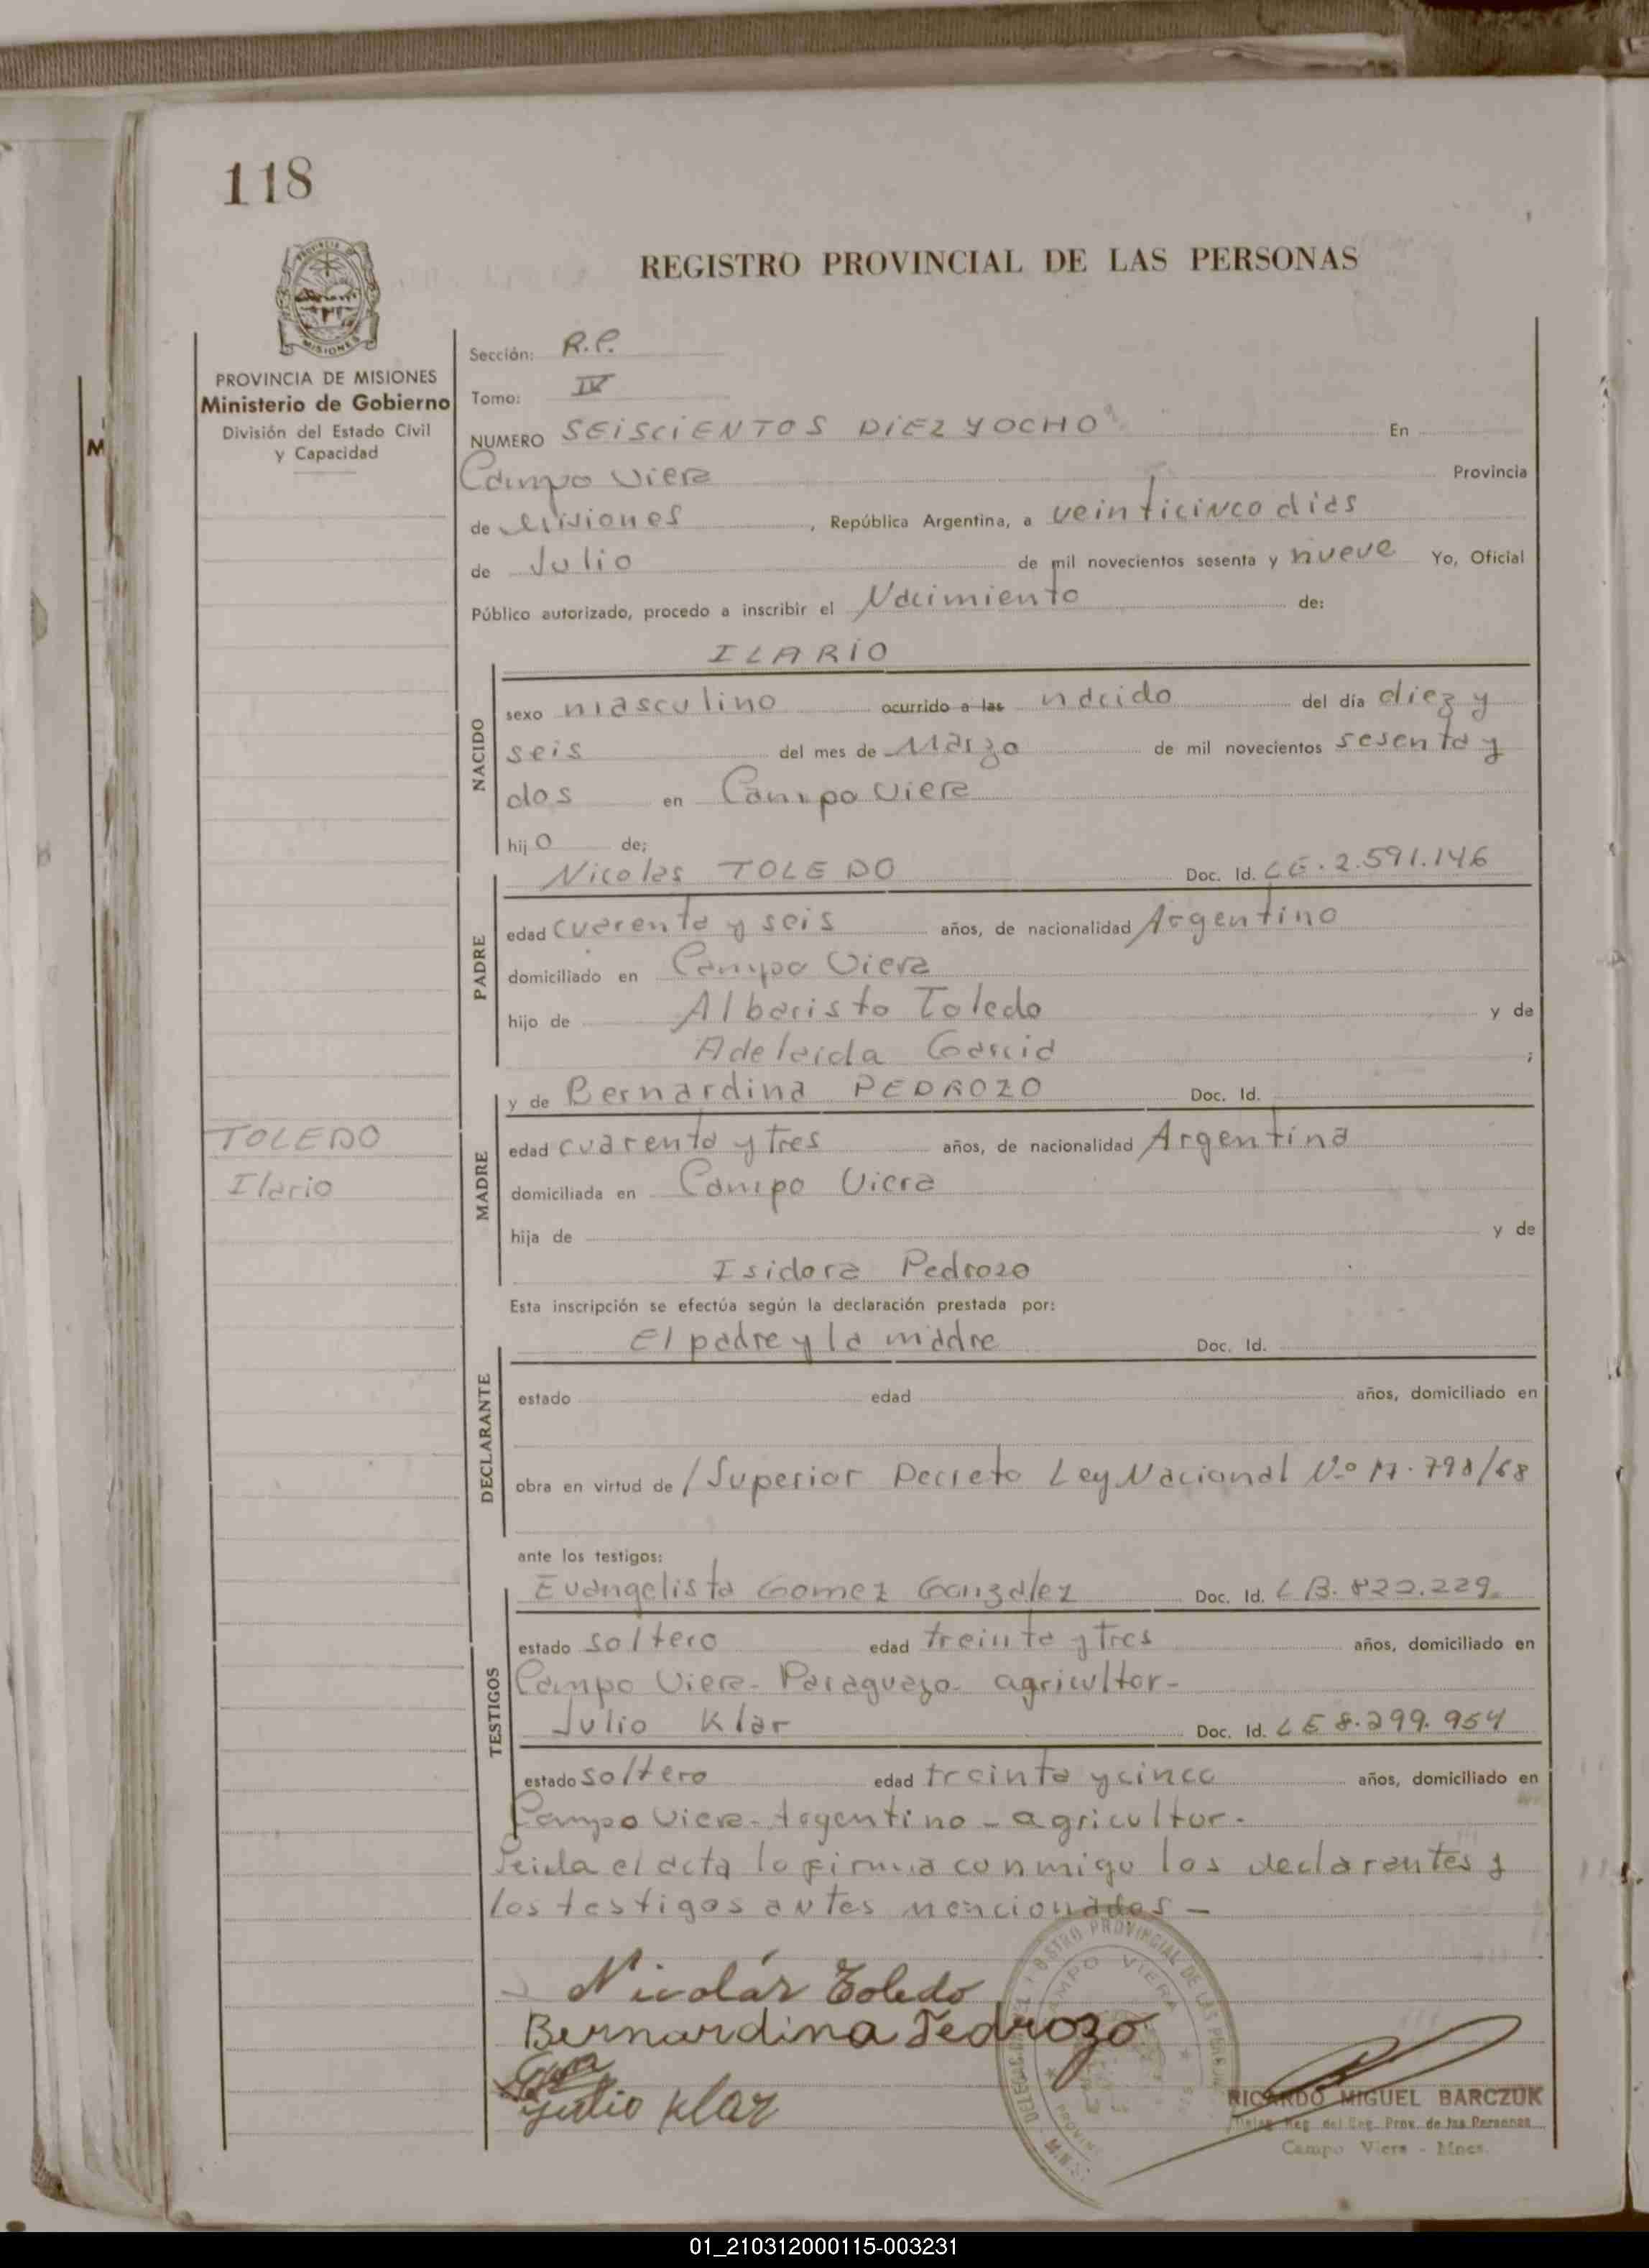 118
REGISTRO PROVINCIAL DE LAS PERSONAS
PROVINCIA DE MISIONES
Ministerio de Gobierno
División del Estado Civil
y Capacidad
M
Sección: R.P.
Tomo: IV
NUMERO SEISCIENTOS DIEZ Y OCHO En
Campo Viera Provincia
de Misiones, República Argentina, a veinticinco dias
de Julio de mil novecientos sesenta y nueve Yo, Oficial
Público autorizado, procedo a inscribir el Nacimiento de:
ILARIO
NACIDO
sexo masculino ocurrido a las nacido del día diez y
seis del mes de Marzo de mil novecientos sesenta y
dos en Campo Viera
hijo de;
Nicolas TOLEDO Doc. Id. LE. 2.591.146
PADRE
edad cuarenta y seis años, de nacionalidad Argentino
domiciliado en Campo Viera
hijo de Albaristo Toledo y de
Adelaida Garcia ;
y de Bernardina PEDROZO Doc. Id.
TOLEDO
Ilario
MADRE
edad cuarenta y tres años, de nacionalidad Argentina
domiciliada en Campo Viera
hija de y de
Isidora Pedrozo
Esta inscripción se efectúa según la declaración prestada por:
El padre y la madre Doc. Id.
DECLARANTE
estado edad años, domiciliado en
obra en virtud de / Superior Decreto Ley Nacional N.o 17.798/68
ante los testigos:
Evangelista Gomez Gonzalez Doc. Id. L B. 822.229
TESTIGOS
estado soltero edad treinta y tres años, domiciliado en
Campo Viera - Paraguayo - agricultor -
Julio Klar Doc. Id. LE 8.299.954
estado soltero edad treinta y cinco años, domiciliado en
Campo Viera - Argentino - agricultor -
Leida el acta lo firma conmigo los declarantes y
los testigos antes mencionados -
Nicolás Toledo
Bernardina Pedrozo
Julio Klar
CAMPO VIERA
RICARDO MIGUEL BARCZUK
Deleg. Reg. del Reg. Prov. de las Personas
Campo Viera - Mnes.
01_210312000115-003231